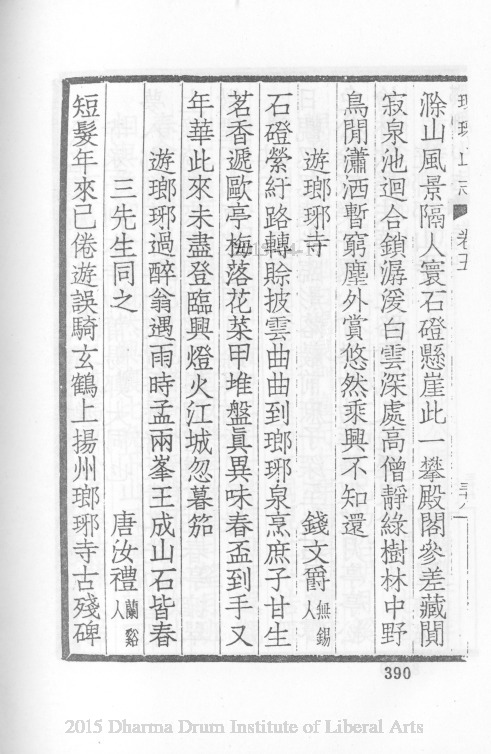 卷五
滁山風景隔人寰石磴懸崖此一攀殿閣參差藏閴
寂泉池迴合鎖潺湲白雲深處高僧靜綠樹林中野
鳥閒瀟洒暫窮塵外賞悠然乘興不知還
遊瑯琊寺　錢文爵無錫人
石磴縈紆路轉賒披雲曲曲到瑯琊泉烹庶子甘生
茗香遞歐亭梅落花菜甲堆盤眞異味春盃到手又
年華此來未盡登臨興燈火江城忽暮笳
遊瑯琊過醉翁遇雨時孟兩峯王成山石皆春
三先生同之　唐汝禮蘭谿人
短髮年來已倦遊誤騎玄鶴上揚州瑯琊寺古殘碑
390
2015 Dharma Drum Institute of Liberal Arts